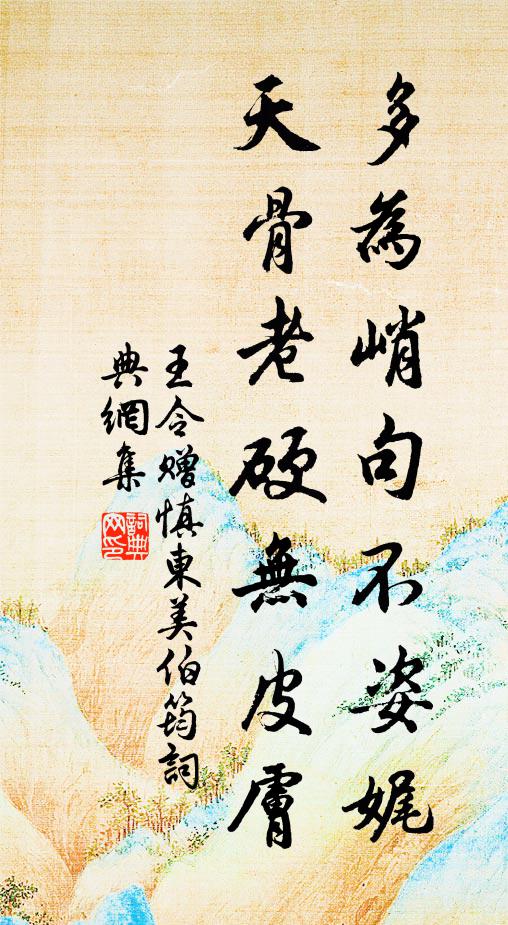 多為峭句不姿娓
天骨老硬無皮膚
王令贈慎東美伯筠詞
典網集
詞典
网印